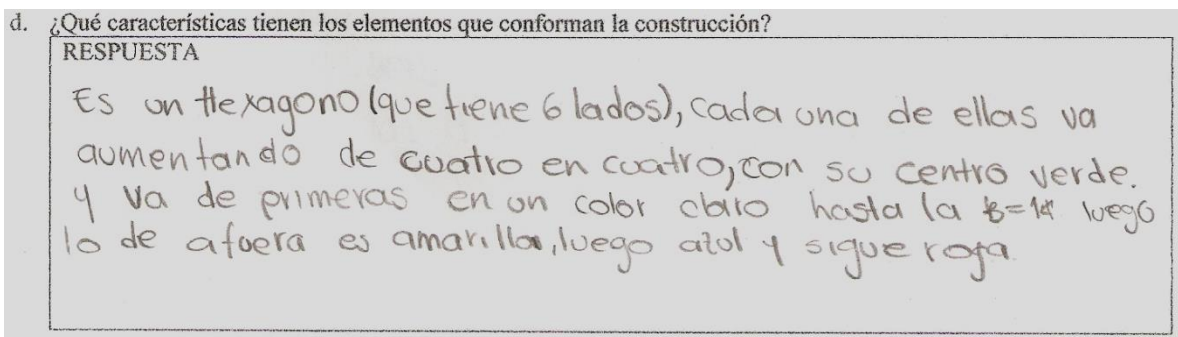 d. ¿Qué características tienen los elementos que conforman la construcción?
RESPUESTA
Es un Hexagono (que tiene 6 lados), cada una de ellas va
aumentando de cuatro en cuatro, con su centro verde.
y va de primeras en un color claro hasta la luego
lo de afuera es amarilla, luego azul y sigue roja.